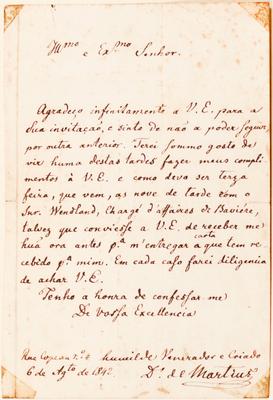 Illmo e Exmo Senhor.
Agradeço infinitamente a V.E. para a
sua invitação, e sinto de naõ a poder seguir
por outra anterior. Terei sommo gosto de
vir huma destas tardes fazer meus compli-
mentos à V.E. e como deva ser terça
feira, que vem, as nove de tarde com o
Snr. Wendland, Chargé d'affaires de Baviére,
talvez que conviesse a V.E. de receber me
huã ora antes pa m'entregar a carta que tem re-
cebido pa mim. Em cada caso farei diligencia
de achar V.E.
Tenho a honra de confessar me
De vossa Excellencia
humilde Venerador e Criado
Rue Copeau no 4
6 de Agto de 1842.
Dr. de Martius